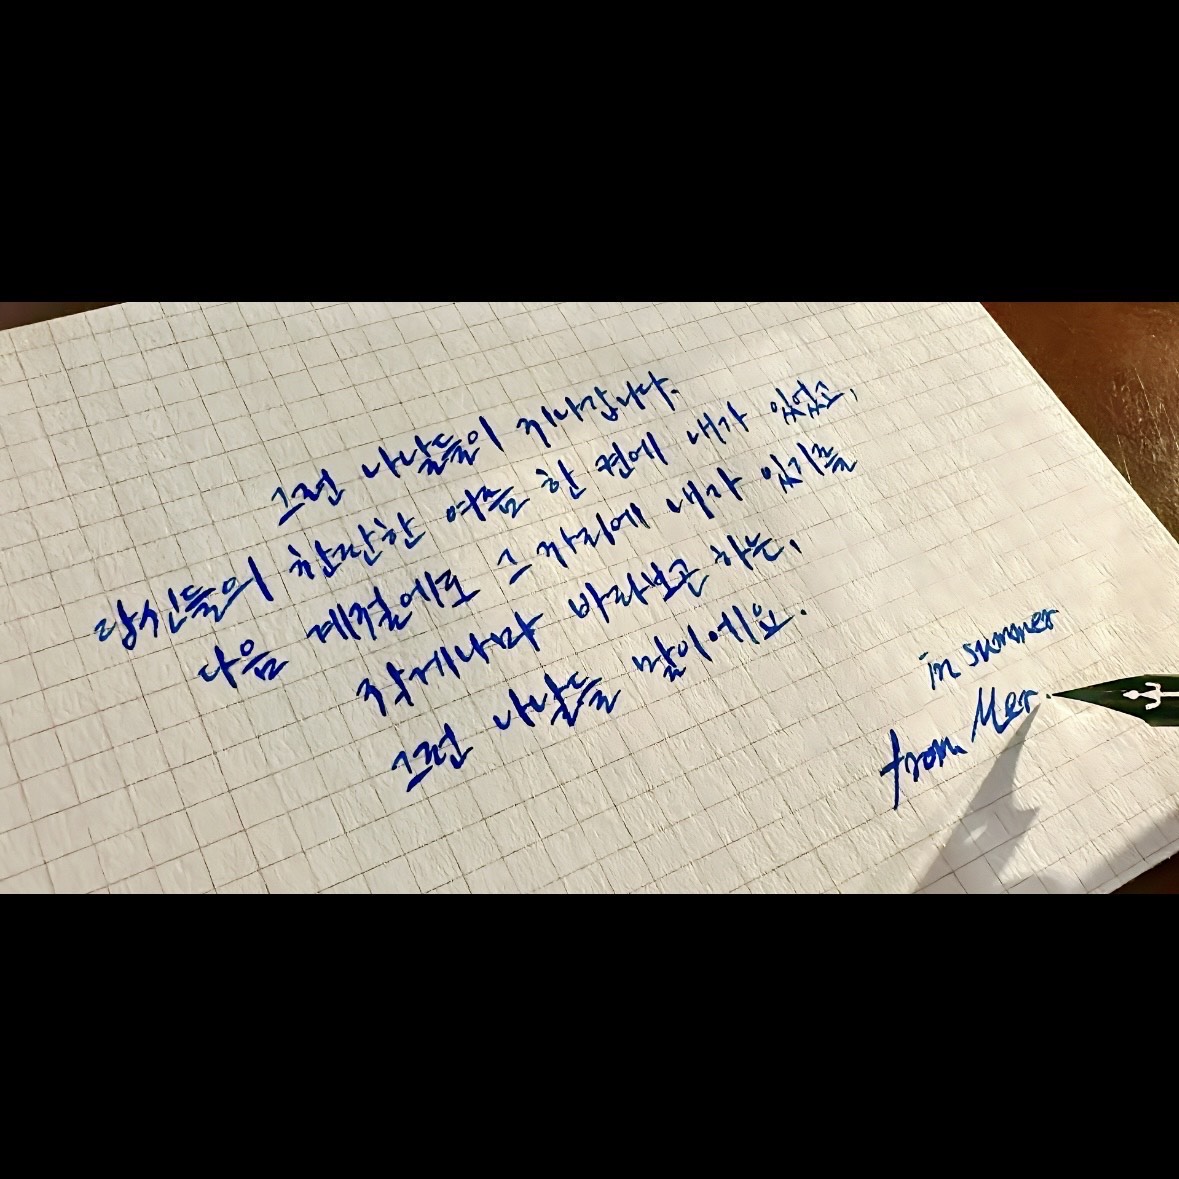 그런 나날들이 지나갑니다.
당신들의 찬란한 여름 한 켠에 내가 있었고,
다음 계절에도 그 자리에 내가 있기를
작게나마 바라보곤 하는,
그런 나날들 말이에요.
in summer
from Mer.